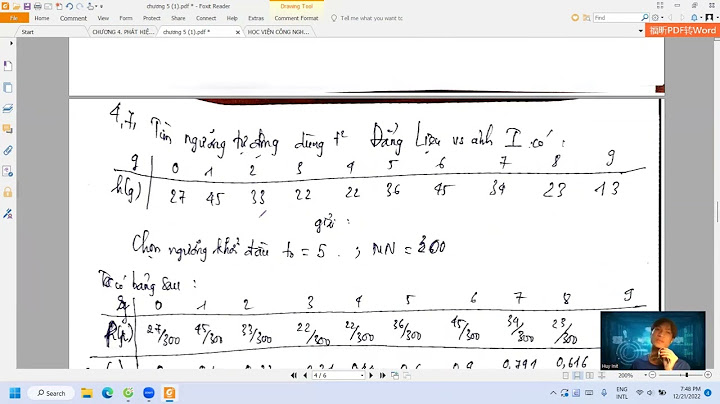 chương 5 (1).pdf * - Foxit Reader
Drawing Tool
File Home Comment View Form Protect Share Help Extras Comment Format Tell me what you want to do Find
搞靳PDF转Word
Start CHƯƠNG 4. PHÁT HIỆ... chương 5 (1).pdf * HỌC VIỆN CÔNG NGHỆ...
4.7, Tìm ngưỡng tự động dùng t² Đẳng Liệu vs ảnh I có :
g 0 1 2 3 4 5 6 7 8 9
h(g) 27 45 33 22 22 36 45 34 23 13
giải :
Chọn ngưỡng khởi đầu t₀ = 5 . ; MN = 300
Ta có bảng sau :
g 0 1 2 3 4 5 6 7 8 9
27/300 45/300 33/300 22/300 22/300 36/300 45/300 34/300 23/300
0,6 0,9 0,791 0,616
Huy Init
4 / 6 200%
Search
ENG
INTL
7:48 PM
12/21/2022